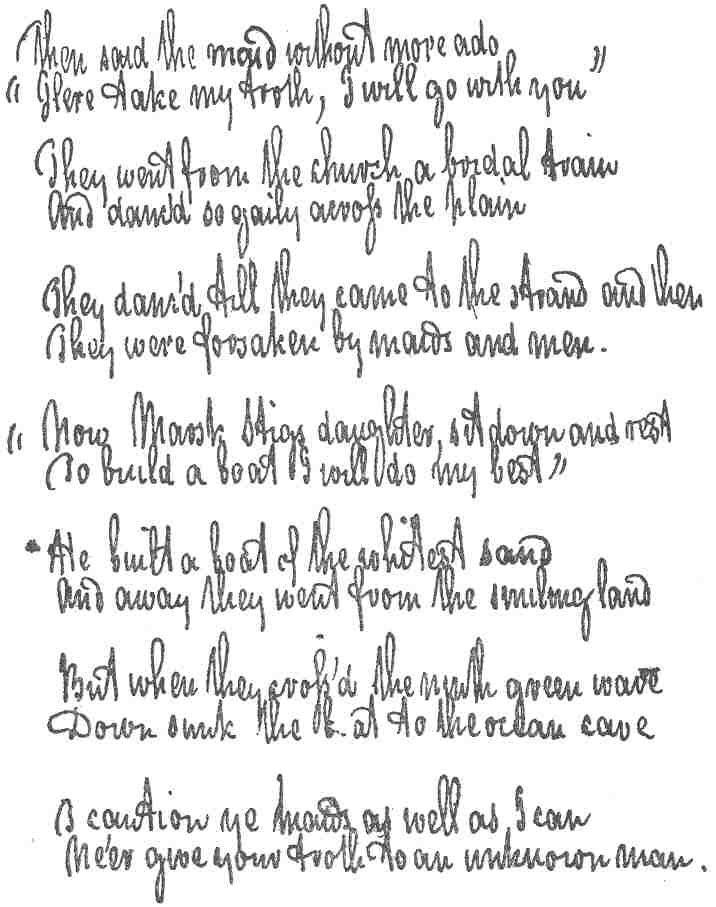 Then said the maid without more ado
"Here take my troth, I will go with you"
They went from the church a bridal train
And danc'd so gaily across the plain
They danc'd till they came to the strand and then
They were forsaken by maids and men.
"Now Marsk Stigs daughter, sit down and rest
To build a boat I will do my best"
He built a boat of the whitest sand
And away they went from the smiling land
But when they cross'd the ninth green wave
Down sunk the b. at to the ocean cave
I caution ye maids as well as I can
Ne'er give your troth to an unknown man.